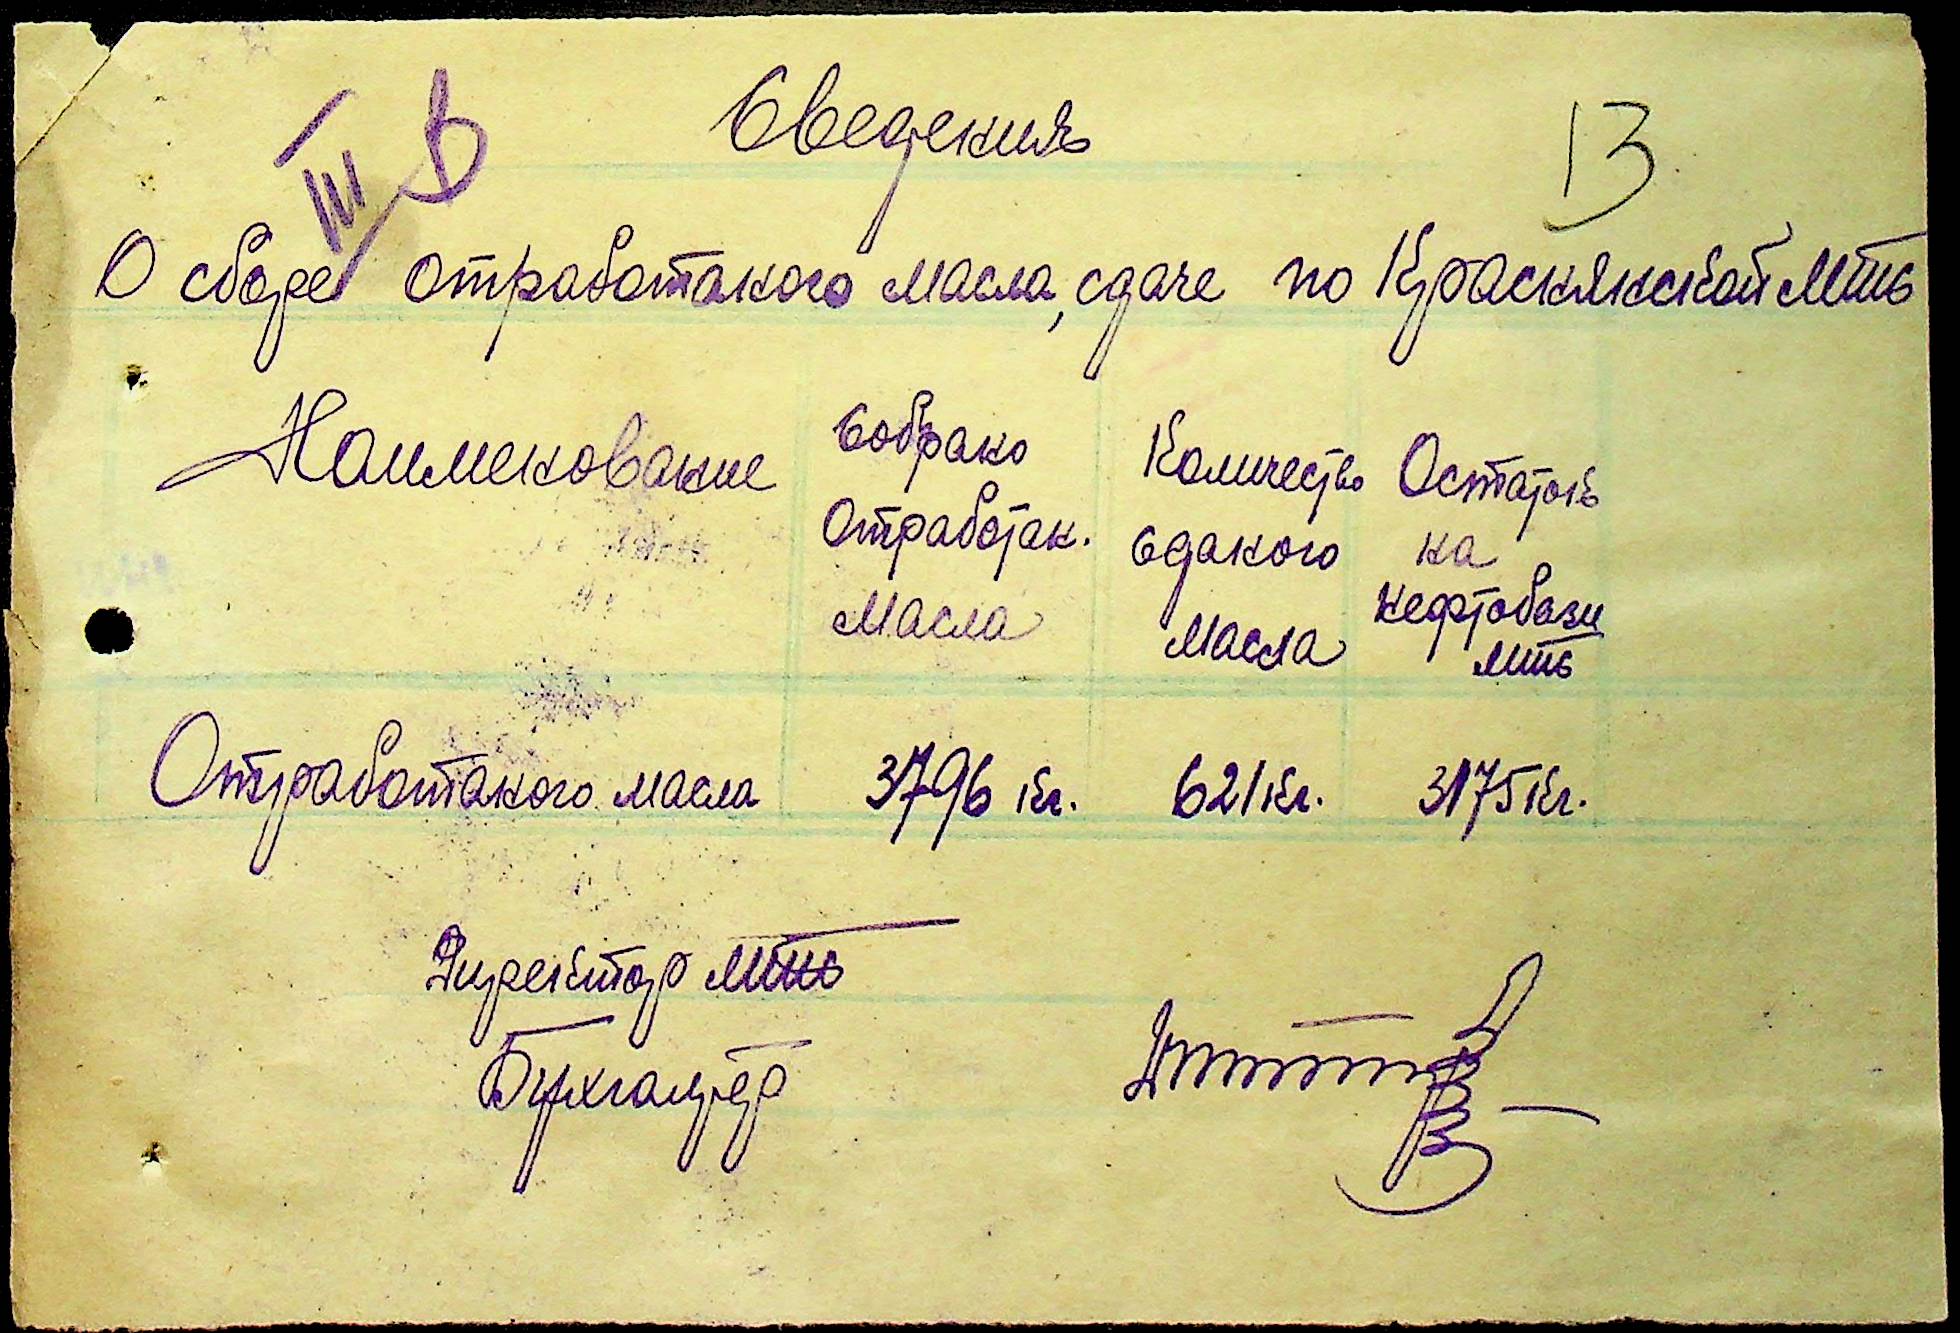 Сведения
13
III В
О сборе отработаного масла, сдаче по Краснянской мтс
Наименование
Собрано отработан. масла
Количество сданого масла
Остаток на нефтобази мтс
Отработаного масла 3796 кг. 621 кг. 3175 кг.
Директор мтс
Бухгалтер